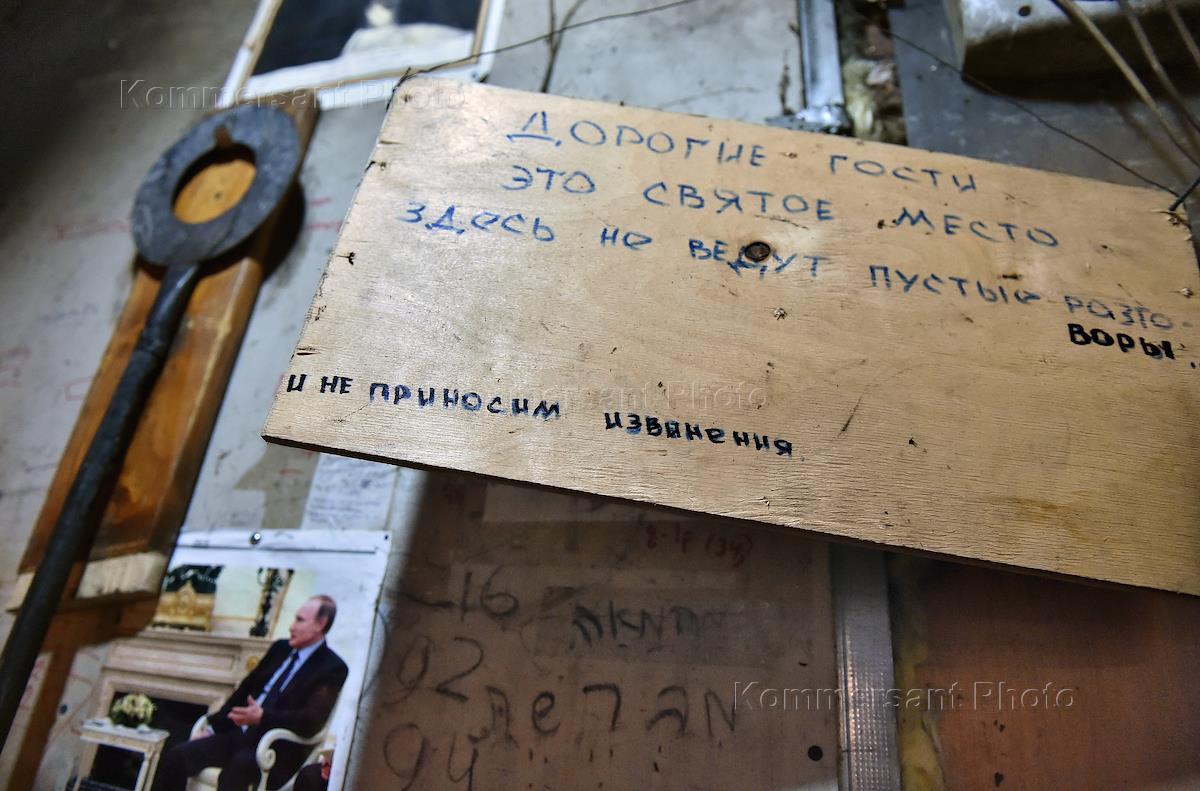 Kommersant Photo
ДОРОГИЕ ГОСТИ
ЭТО СВЯТОЕ МЕСТО
ЗДЕСЬ НЕ ВЕДУТ ПУСТЫЕ РАЗГО-
ВОРЫ.
И НЕ ПРИНОСИМ ИЗВИНЕНИЯ.
Kommersant Photo
16
92
94
Kommersant Photo